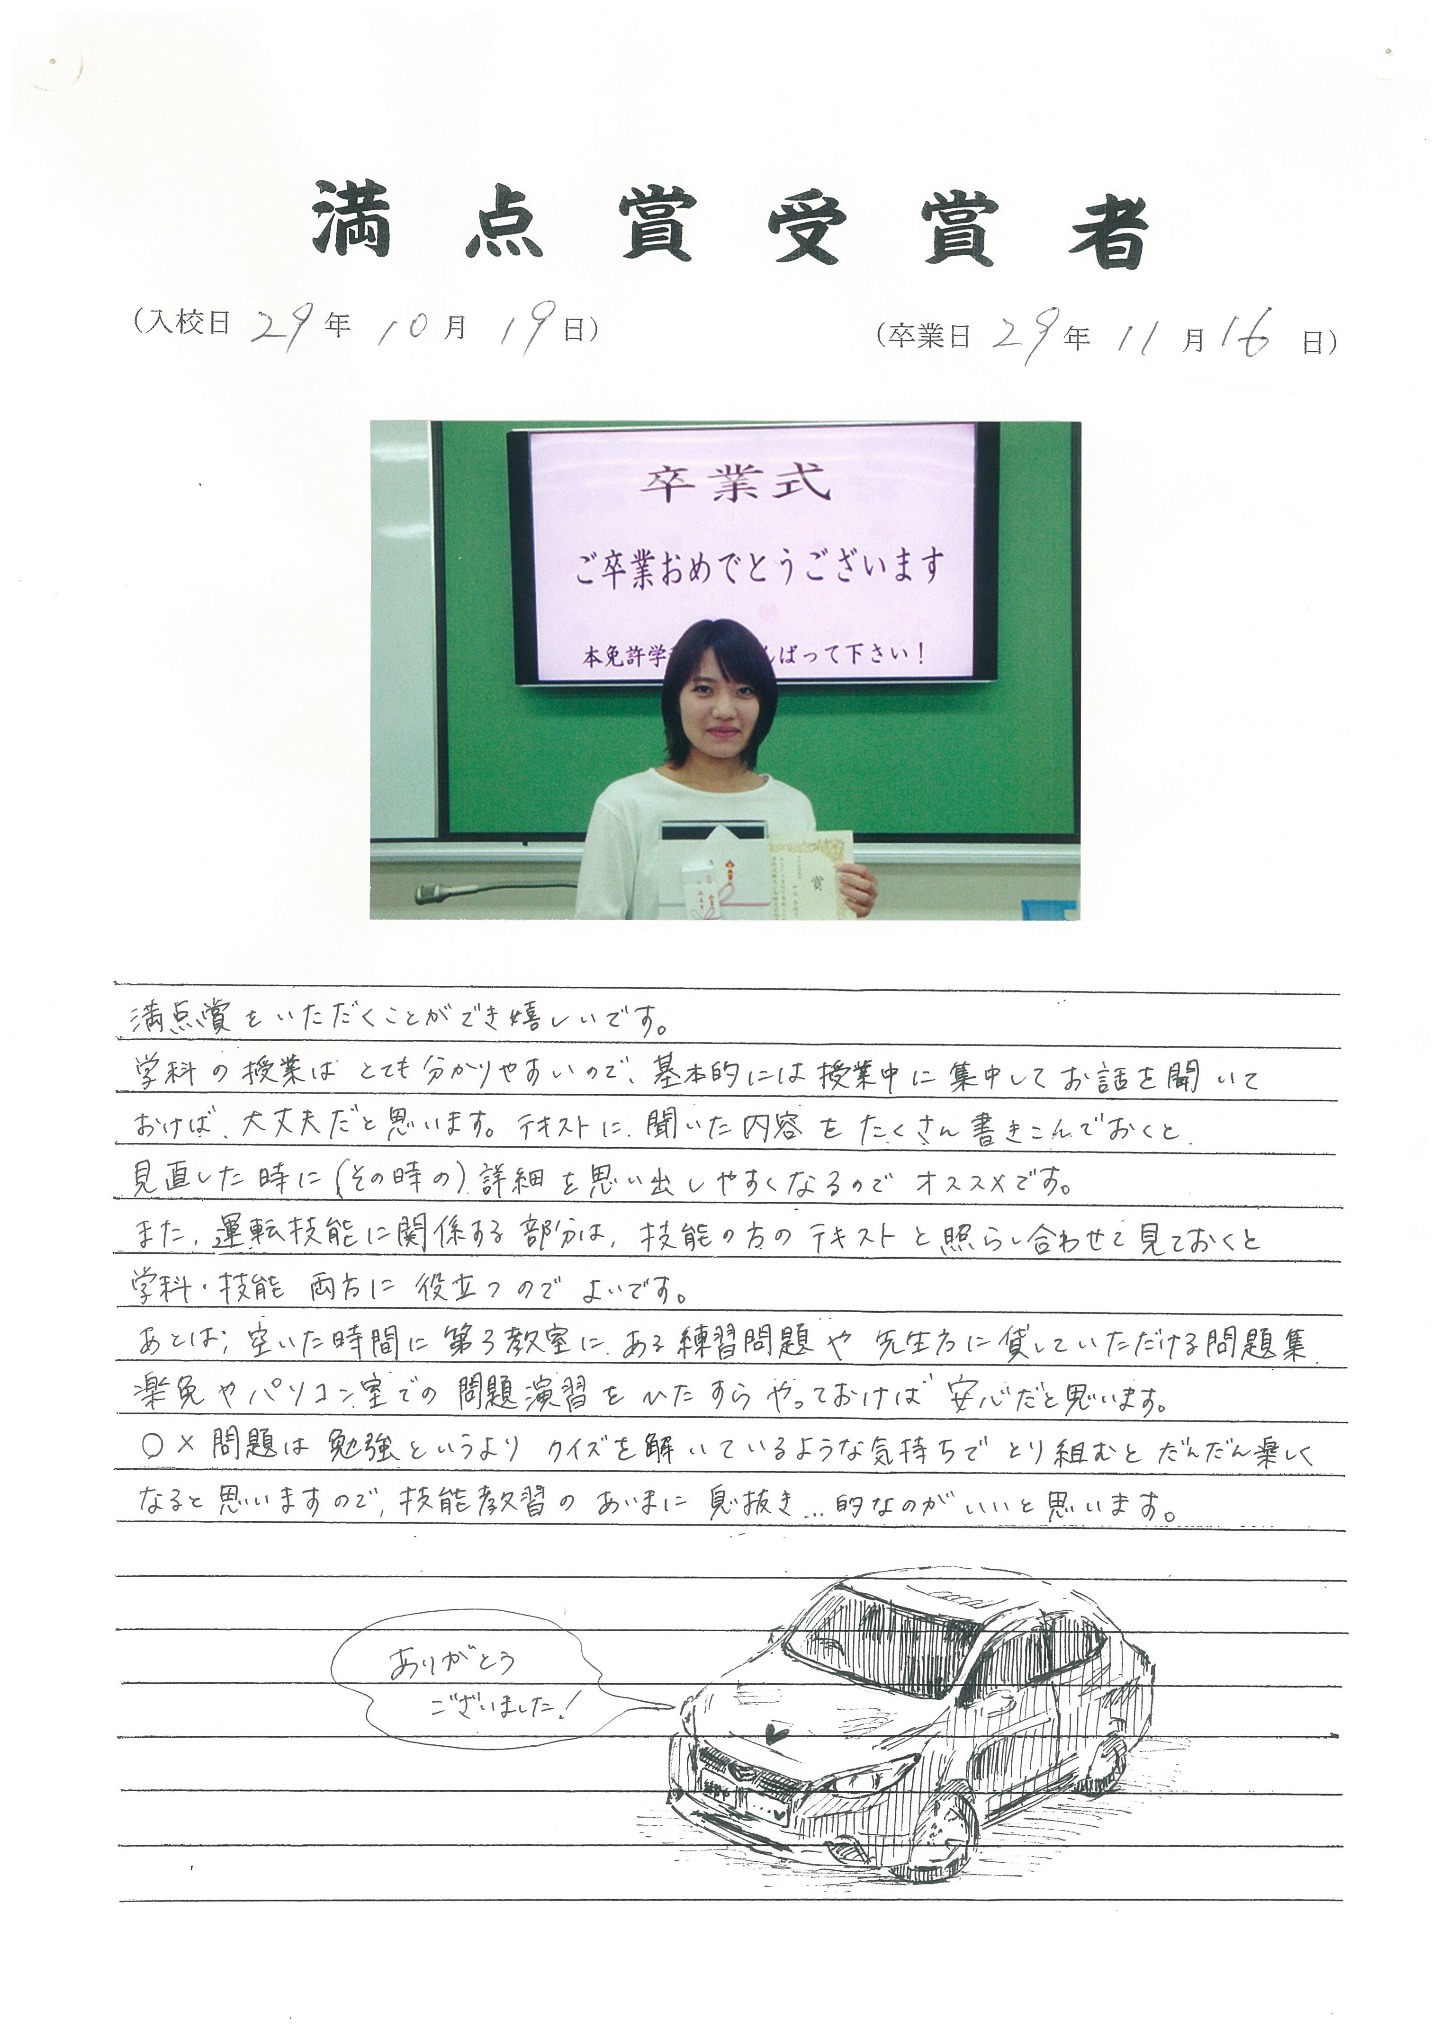 満点賞受賞者
(入校日 29年 10月 19日)
(卒業日 29年 11月 16日)
卒業式
ご卒業おめでとうございます
本免許学 んばって下さい!
賞
満点賞をいただくことができ嬉しいです。
学科の授業はとても分かりやすいので、基本的には授業中に集中してお話を聞いて
おけば、大丈夫だと思います。テキストに、聞いた内容をたくさん書きこんでおくと、
見直した時に(その時の)詳細を思い出しやすくなるのでオススメです。
また、運転技能に関係する部分は、技能の方のテキストと照らし合わせて見ておくと
学科・技能 両方に役立つのでよいです。
あとは、空いた時間に第3教室にある練習問題や先生方に貸していただける問題集、
楽免やパソコン室での問題演習をひたすらやっておけば安心だと思います。
○×問題は勉強というよりクイズを解いているような気持ちでとり組むとだんだん楽しく
なると思いますので、技能教習のあいまに息抜き…的なのがいいと思います。
ありがとう
ございました!